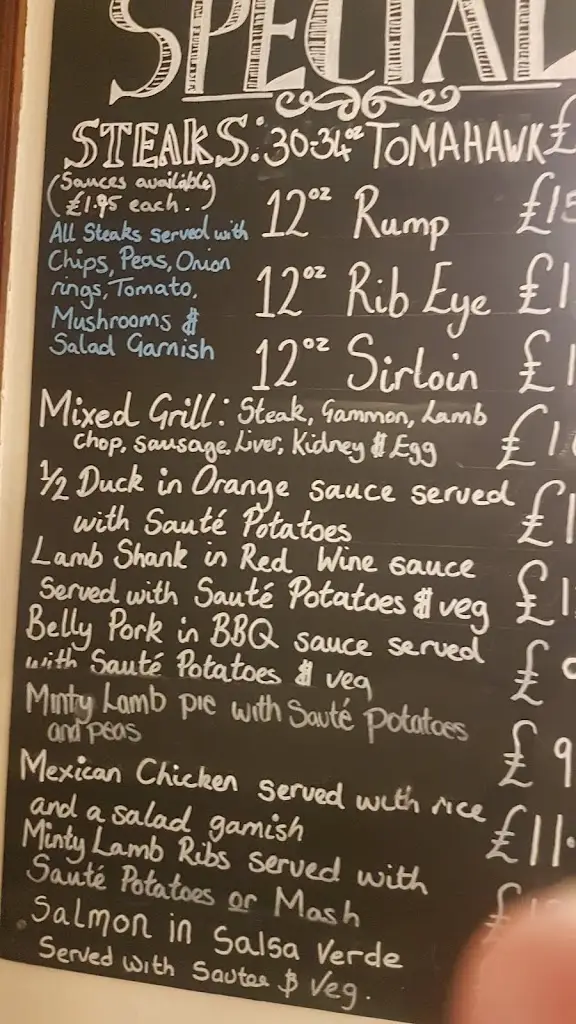 SPECIAL
STEAKS: 30-34oz TOMAHAWK £
(Sauces available)
£1.95 each.)
All Steaks served with
Chips, Peas, Onion
rings, Tomato,
Mushrooms &
Salad Garnish
12oz Rump £15
12oz Rib Eye £1
12oz Sirloin £1
Mixed Grill: Steak, Gammon, Lamb
Chop, Sausage, Liver, Kidney & Egg £1
1/2 Duck in Orange sauce served
with Sauté Potatoes £1
Lamb Shank in Red Wine sauce
Served with Sauté Potatoes & veg £1
Belly Pork in BBQ sauce served
with Sauté Potatoes & veg £
Minty Lamb pie with Sauté potatoes
and peas £9
Mexican Chicken served with rice
and a salad garnish £11.
Minty Lamb Ribs served with
Sauté Potatoes or Mash £
Salmon in Salsa Verde
Served with Sautee & Veg.